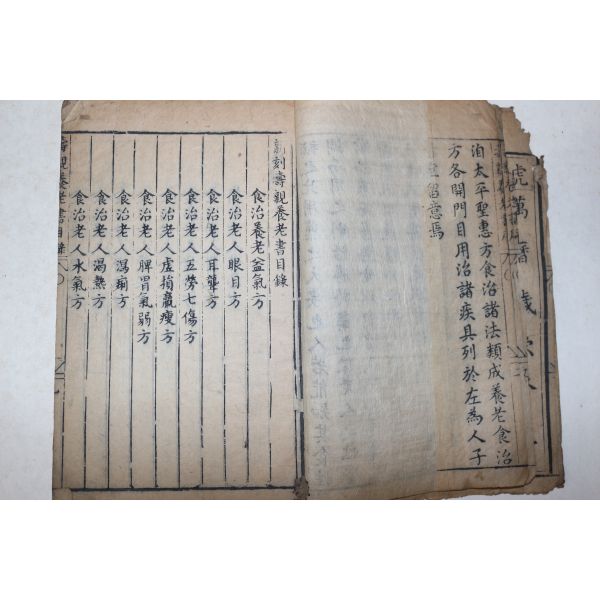 虎萬曆歲次
洎太平聖惠方食治諸法類成養老食治
方各開門目用治諸疾具列於左為人子
留意焉
新刻壽親養老書目錄
食治養老益氣方
食治老人眼目方
食治老人耳聾方
食治老人五勞七傷方
食治老人虛損羸瘦方
食治老人脾胃氣弱方
食治老人瀉痢方
食治老人渴熱方
食治老人水氣方
壽親養老書目錄